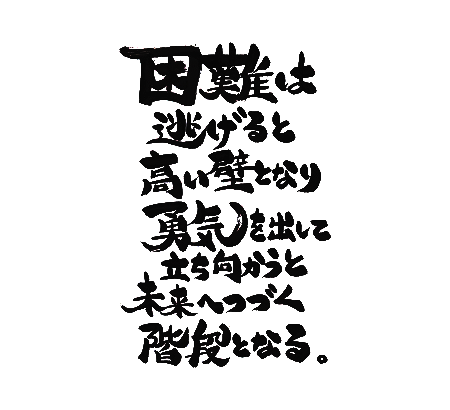 困難は
逃げると
高い壁となり
勇気を出して
立ち向かうと
未来へつづく
階段となる。